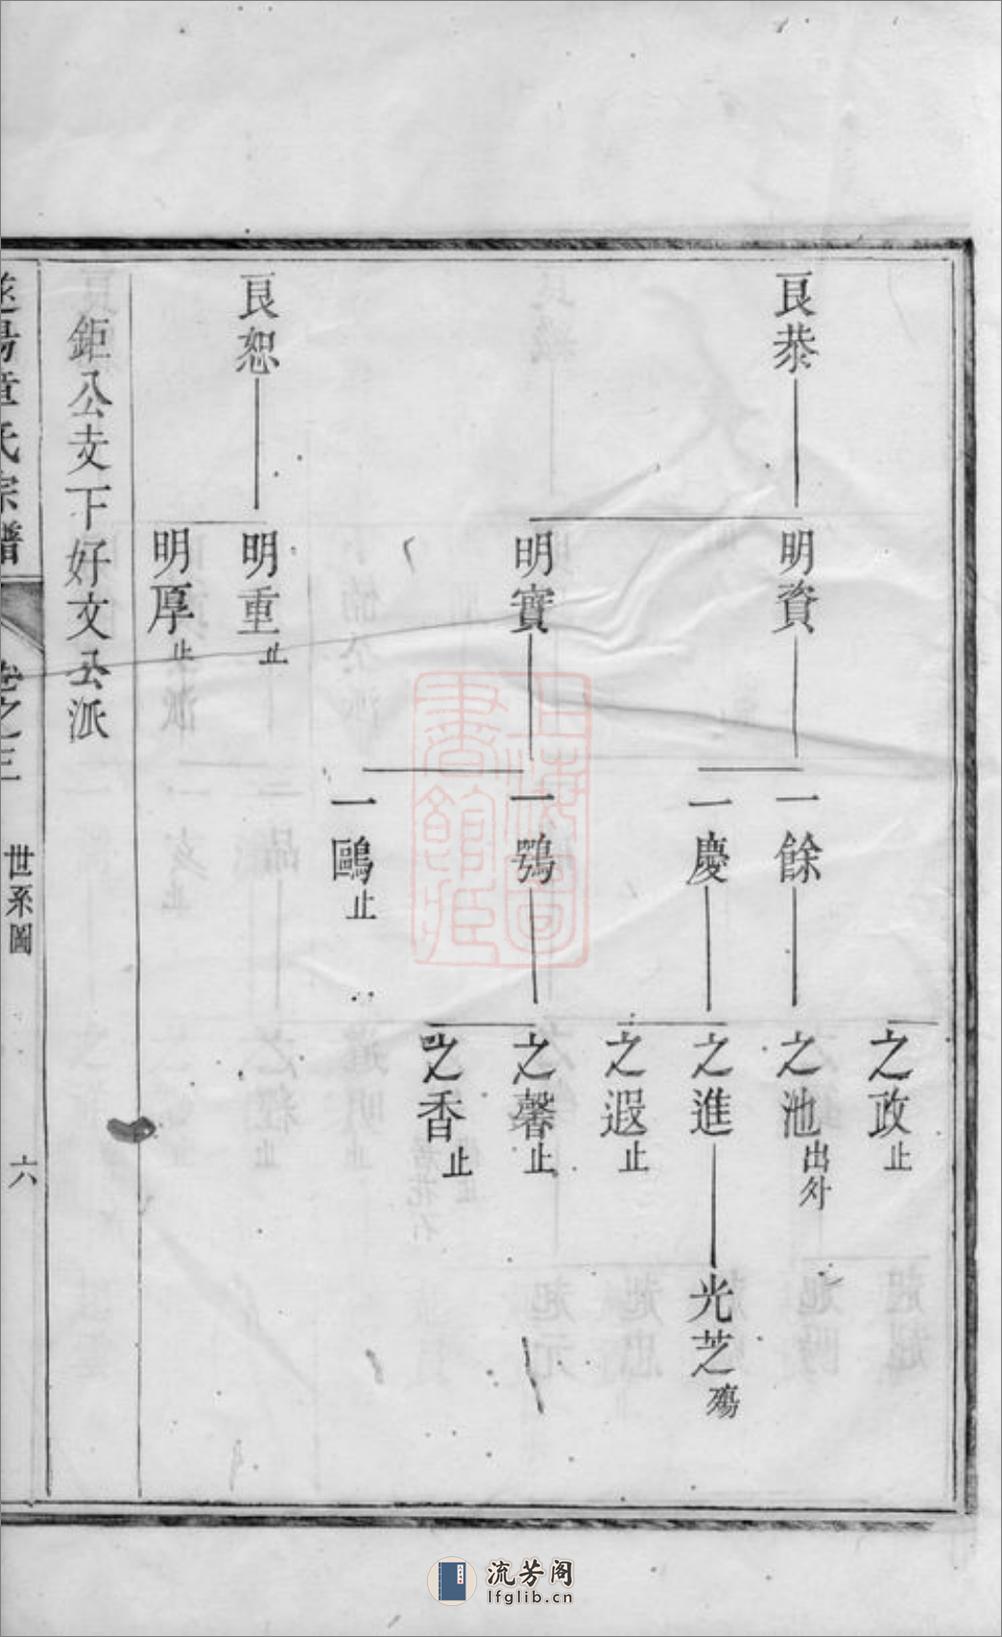 良恭
明資
一餘
之政止
之池出外
一慶
之進
光芝殤
之遐止
明實
一鶚
之馨止
之香止
一鷗止
良恕
明重止
明厚止
鉅公支下好文公派
童氏宗譜
卷之三
世系圖
六
上海圖書館藏
流芳阁
lfglib.cn